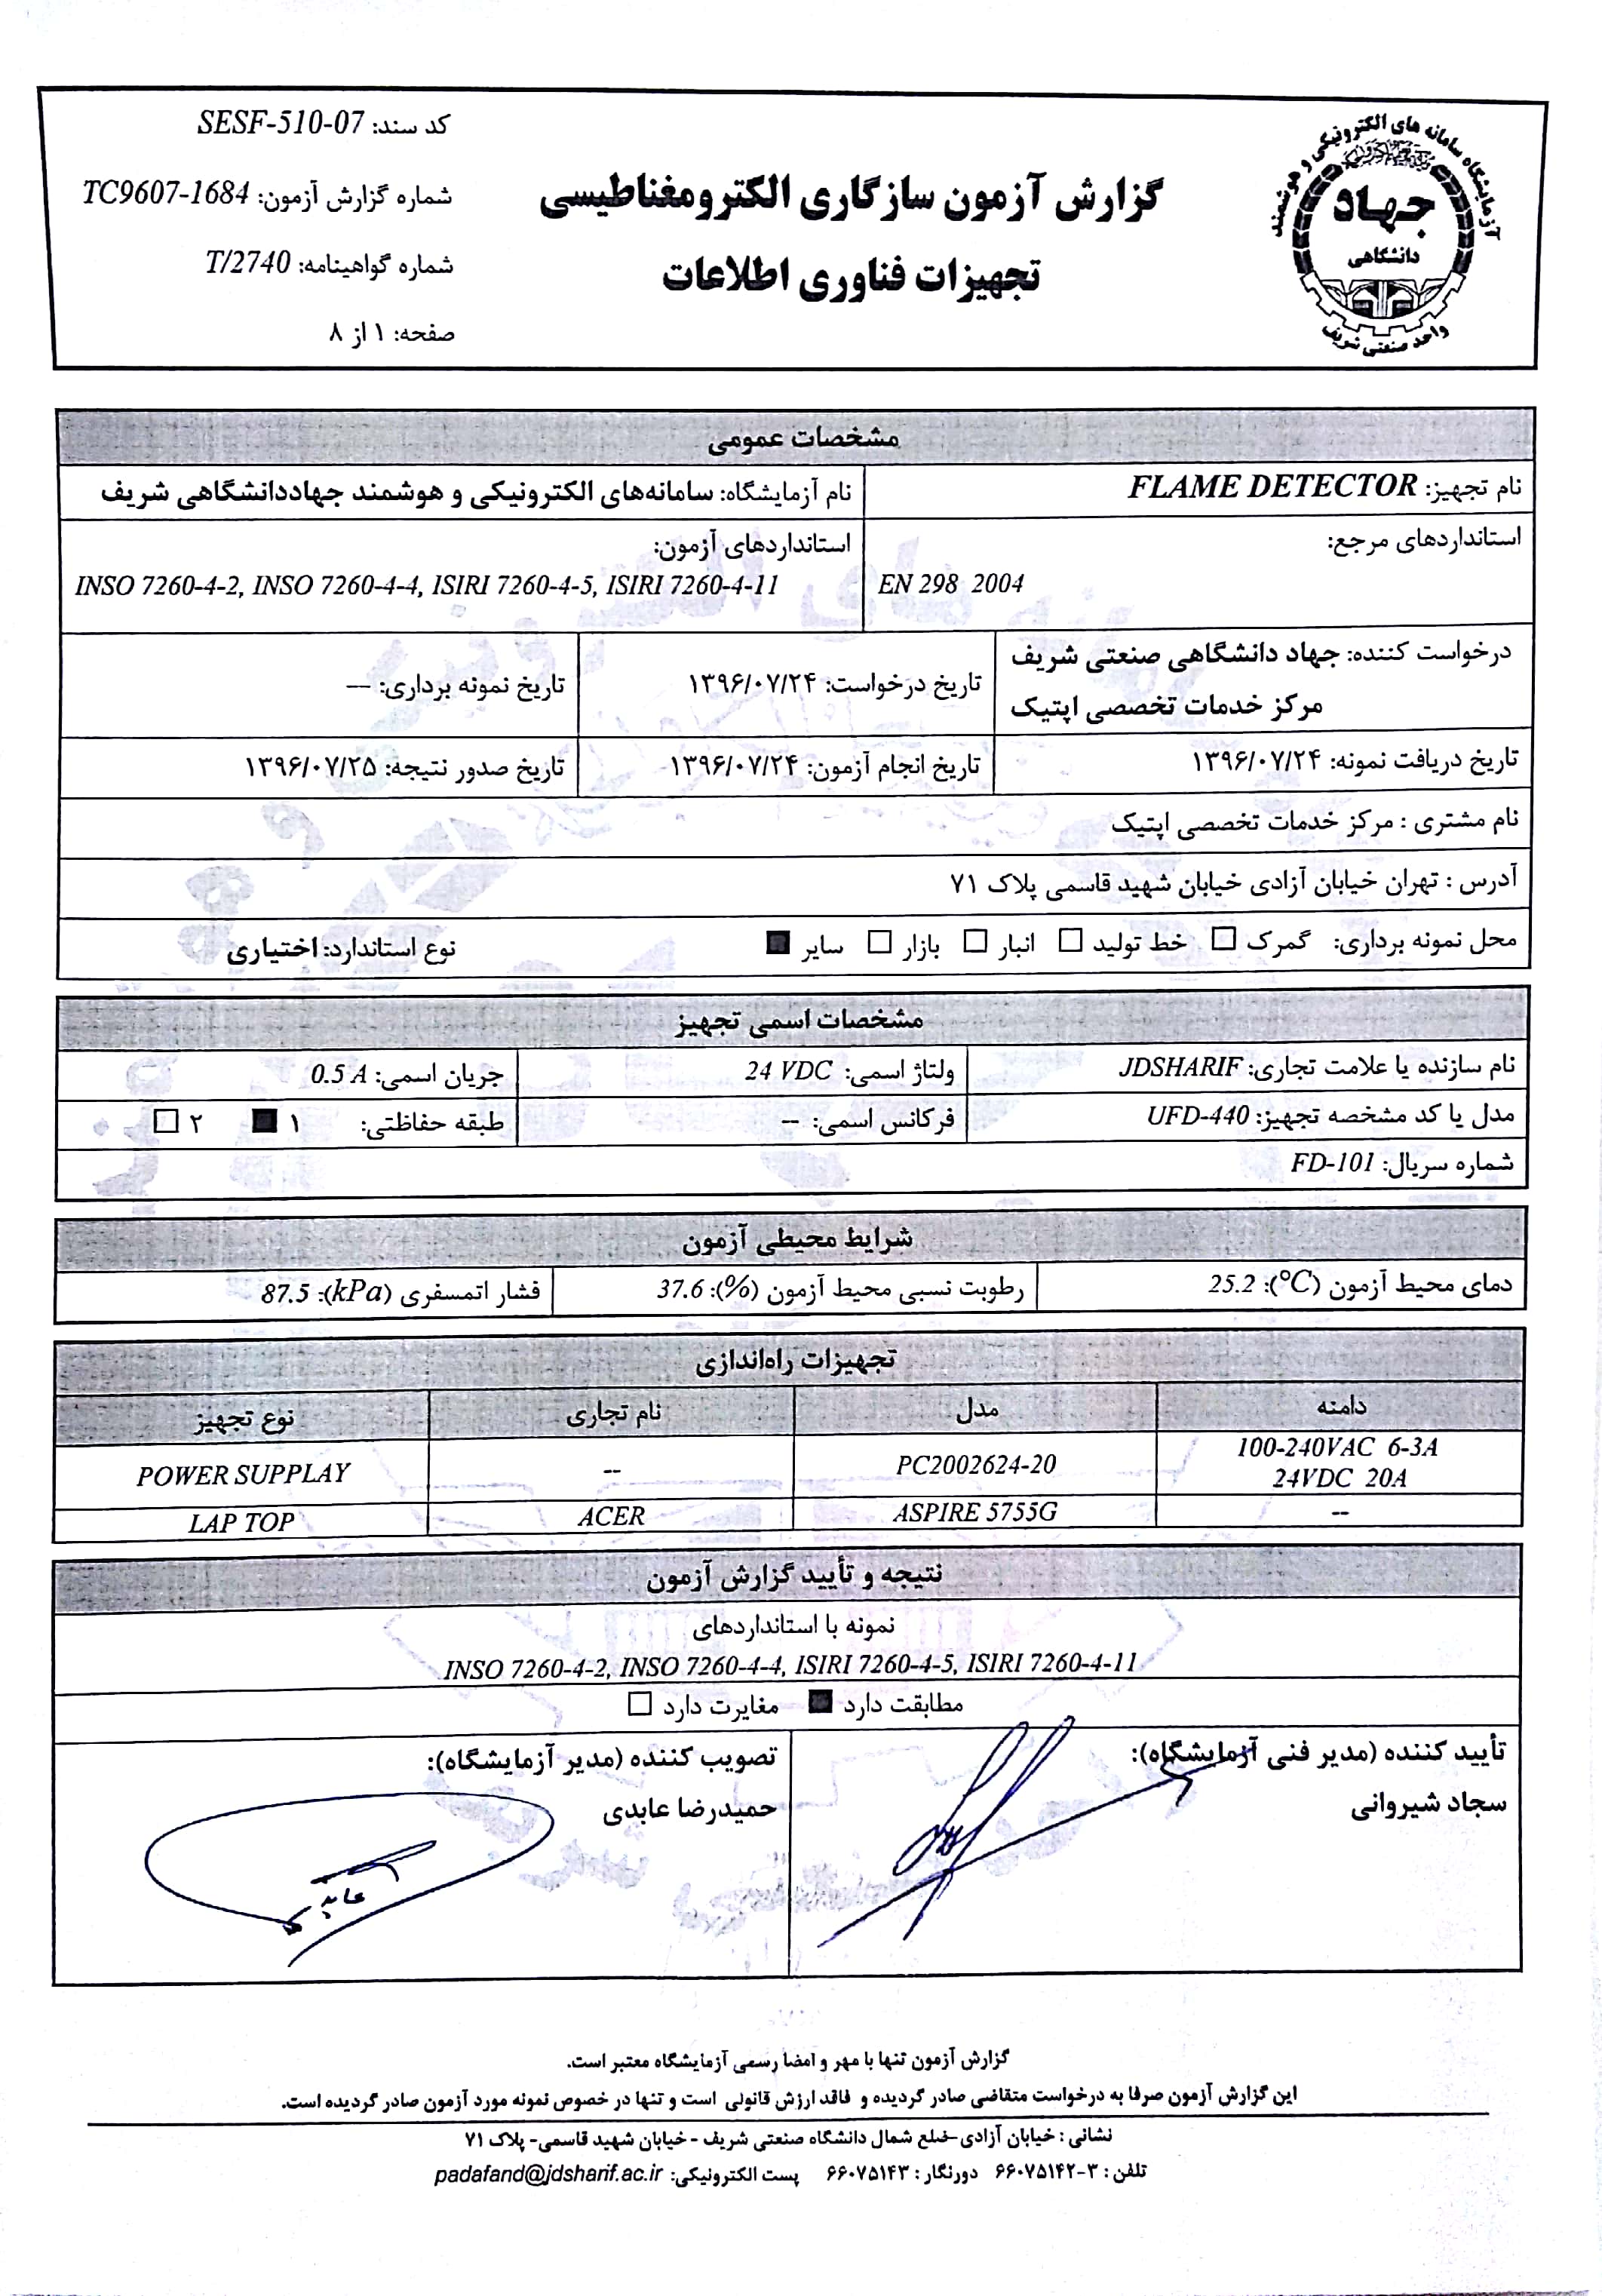 آزمایشگاه سامانه های الکترونیکی و هوشمند
جهاد
دانشگاهی
واحد صنعتی شریف
گزارش آزمون سازگاری الکترومغناطیسی
تجهیزات فناوری اطلاعات
کد سند: SESF-510-07
شماره گزارش آزمون: TC9607-1684
شماره گواهینامه: T/2740
صفحه: ۱ از ۸
مشخصات عمومی
نام تجهیز: FLAME DETECTOR
نام آزمایشگاه: سامانه‌های الکترونیکی و هوشمند جهاددانشگاهی شریف
استانداردهای مرجع:
EN 298 2004
استانداردهای آزمون:
INSO 7260-4-2, INSO 7260-4-4, ISIRI 7260-4-5, ISIRI 7260-4-11
درخواست کننده: جهاد دانشگاهی صنعتی شریف
مرکز خدمات تخصصی اپتیک
تاریخ درخواست: ۱۳۹۶/۰۷/۲۴
تاریخ نمونه برداری: ---
تاریخ دریافت نمونه: ۱۳۹۶/۰۷/۲۴
تاریخ انجام آزمون: ۱۳۹۶/۰۷/۲۴
تاریخ صدور نتیجه: ۱۳۹۶/۰۷/۲۵
نام مشتری : مرکز خدمات تخصصی اپتیک
آدرس : تهران خیابان آزادی خیابان شهید قاسمی پلاک ۷۱
محل نمونه برداری: گمرک □ خط تولید □ انبار □ بازار □ سایر ■
نوع استاندارد: اختیاری
مشخصات اسمی تجهیز
نام سازنده یا علامت تجاری: JDSHARIF
ولتاژ اسمی: 24 VDC
جریان اسمی: 0.5 A
مدل یا کد مشخصه تجهیز: UFD-440
فرکانس اسمی: --
طبقه حفاظتی: ۱ ■ ۲ □
شماره سریال: FD-101
شرایط محیطی آزمون
دمای محیط آزمون (°C): 25.2
رطوبت نسبی محیط آزمون (%): 37.6
فشار اتمسفری (kPa): 87.5
تجهیزات راه‌اندازی
دامنه
مدل
نام تجاری
نوع تجهیز
100-240VAC 6-3A
24VDC 20A
PC2002624-20
--
POWER SUPPLAY
--
ASPIRE 5755G
ACER
LAP TOP
نتیجه و تأیید گزارش آزمون
نمونه با استانداردهای
INSO 7260-4-2, INSO 7260-4-4, ISIRI 7260-4-5, ISIRI 7260-4-11
مطابقت دارد ■ مغایرت دارد □
تأیید کننده (مدیر فنی آزمایشگاه):
سجاد شیروانی
تصویب کننده (مدیر آزمایشگاه):
حمیدرضا عابدی
گزارش آزمون تنها با مهر و امضا رسمی آزمایشگاه معتبر است.
این گزارش آزمون صرفا به درخواست متقاضی صادر گردیده و فاقد ارزش قانونی است و تنها در خصوص نمونه مورد آزمون صادر گردیده است.
نشانی : خیابان آزادی-ضلع شمال دانشگاه صنعتی شریف - خیابان شهید قاسمی- پلاک ۷۱
تلفن : ۳-۶۶۰۷۵۱۴۲ دورنگار : ۶۶۰۷۵۱۴۳ پست الکترونیکی: padafand@jdsharif.ac.ir